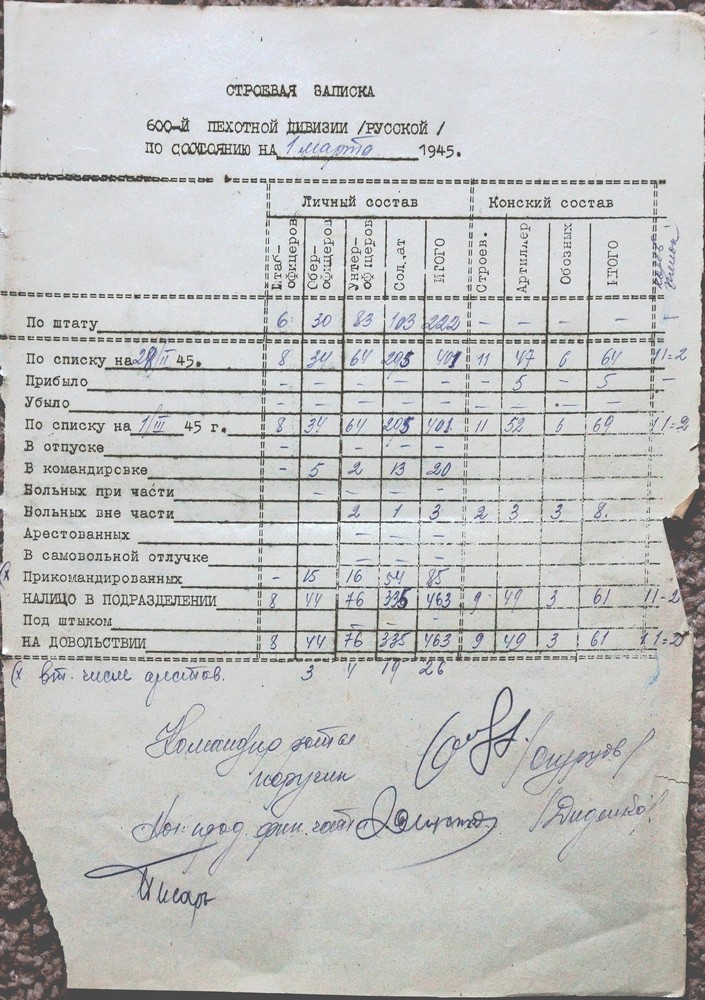 СТРОЕВАЯ ЗАПИСКА
600-Й ПЕХОТНОЙ ДИВИЗИИ /РУССКОЙ /
ПО СОСТОЯНИЮ НА 1 марта 1945.
Личный состав Конский состав
Штаб-офицеров Обер-офицеров Унтер-офицеров Солдат ИТОГО Строев. Артиллер Обозных ИТОГО
По штату 6 30 83 103 222 – – – –
По списку на 28/II 45. 8 34 64 295 401 11 47 6 64 11=2
Прибыло – – – – – – 5 – 5 –
Убыло – – – – – – – – –
По списку на 1/III 45 г. 8 34 64 295 401 11 52 6 69 11=2
В отпуске – – – – –
В командировке – 5 2 13 20
Больных при части – – – –
Больных вне части 2 1 3 2 3 3 8
Арестованных – – –
В самовольной отлучке – – –
(х Прикомандированных – 15 16 54 85
НАЛИЦО В ПОДРАЗДЕЛЕНИИ 8 44 76 335 463 9 49 3 61 11=2
Под штыком – – –
НА ДОВОЛЬСТВИИ 8 44 76 335 463 9 49 3 61 11=2
(х в т. числе арестов. 3 4 19 26
Командир роты
поручик
/Диденко/
Писарь